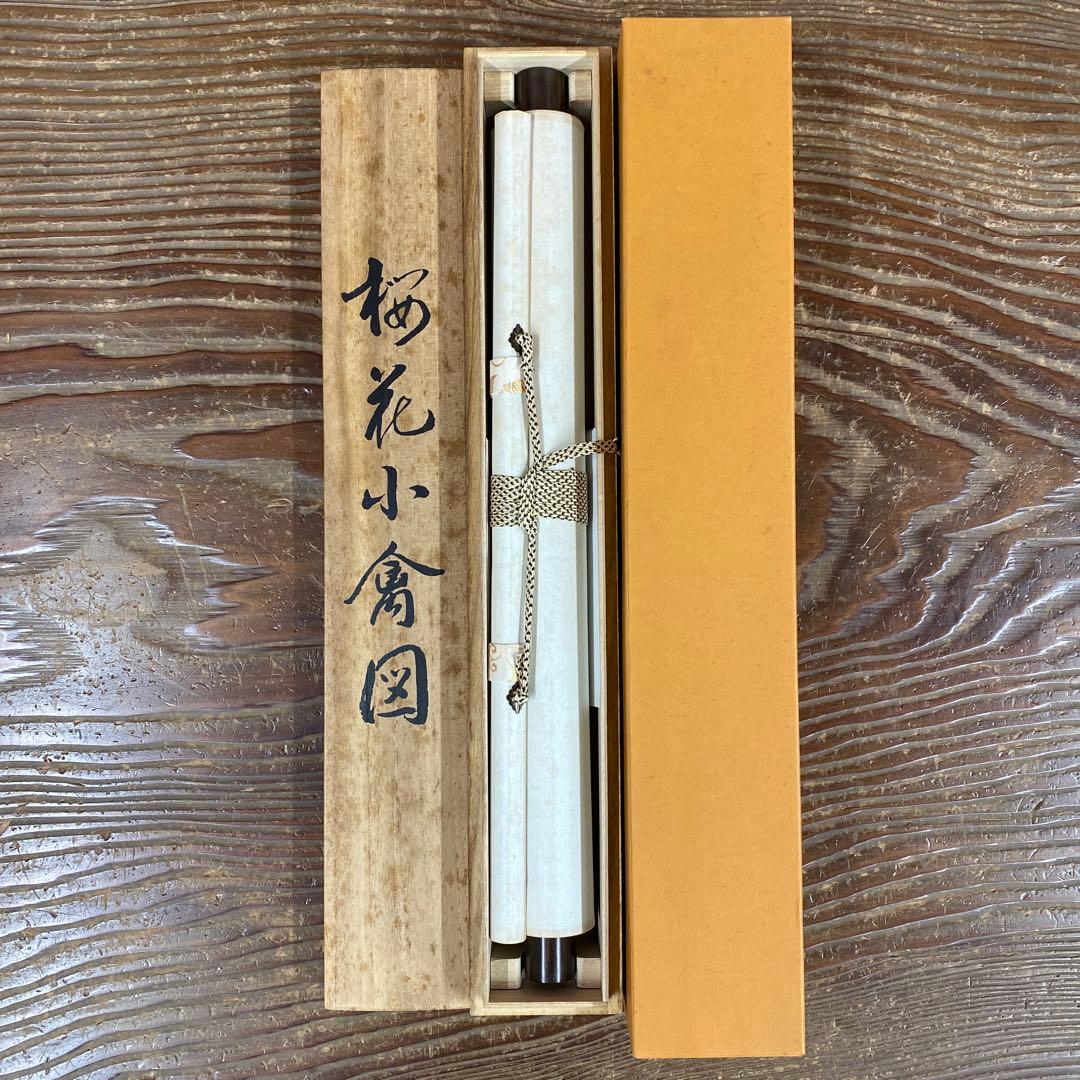 桜花小禽図